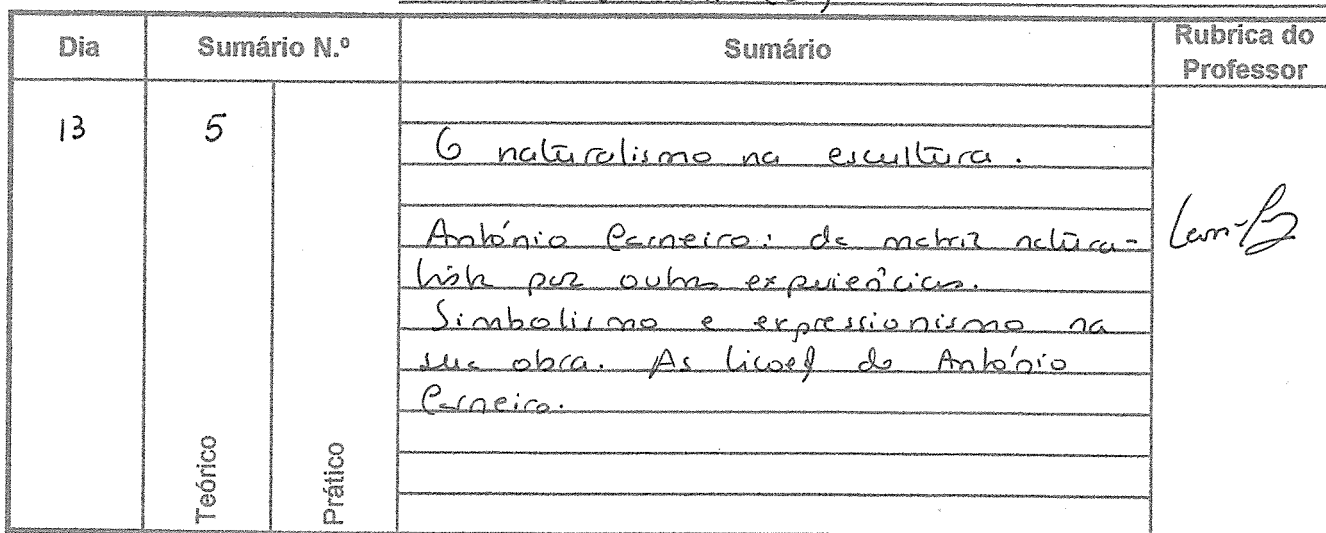 Dia Sumário N.º Sumário Rubrica do Professor
13 5
O naturalismo na escultura.
António Carneiro: da matriz natura-
lista por outras experiências.
Simbolismo e expressionismo na
sua obra. As lições de António
Carneiro.
Teórico Prático